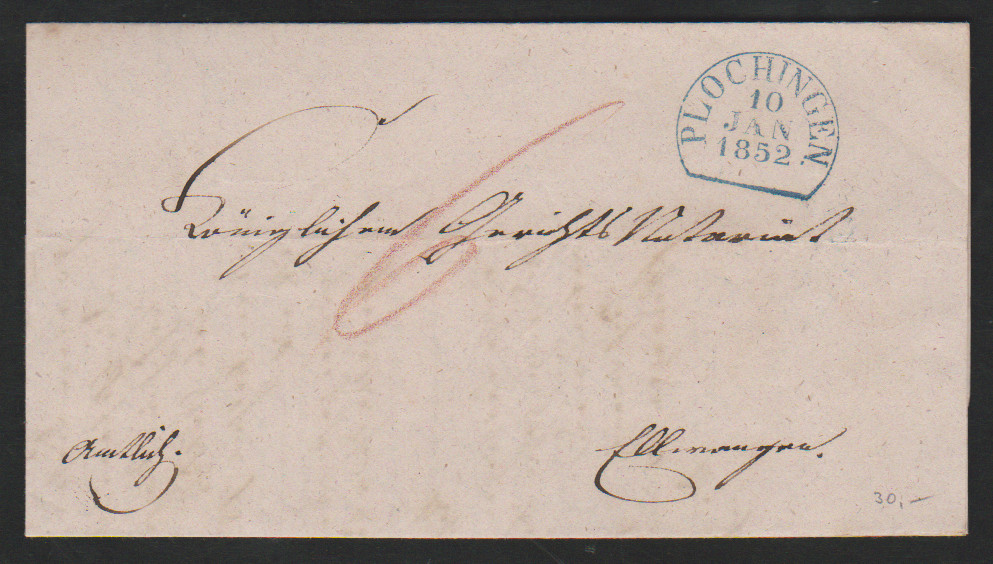 PLOCHINGEN
10
JAN
1852
6
Königlichem Gerichts Notariat
Amtlich.
Ellwangen.
30,-